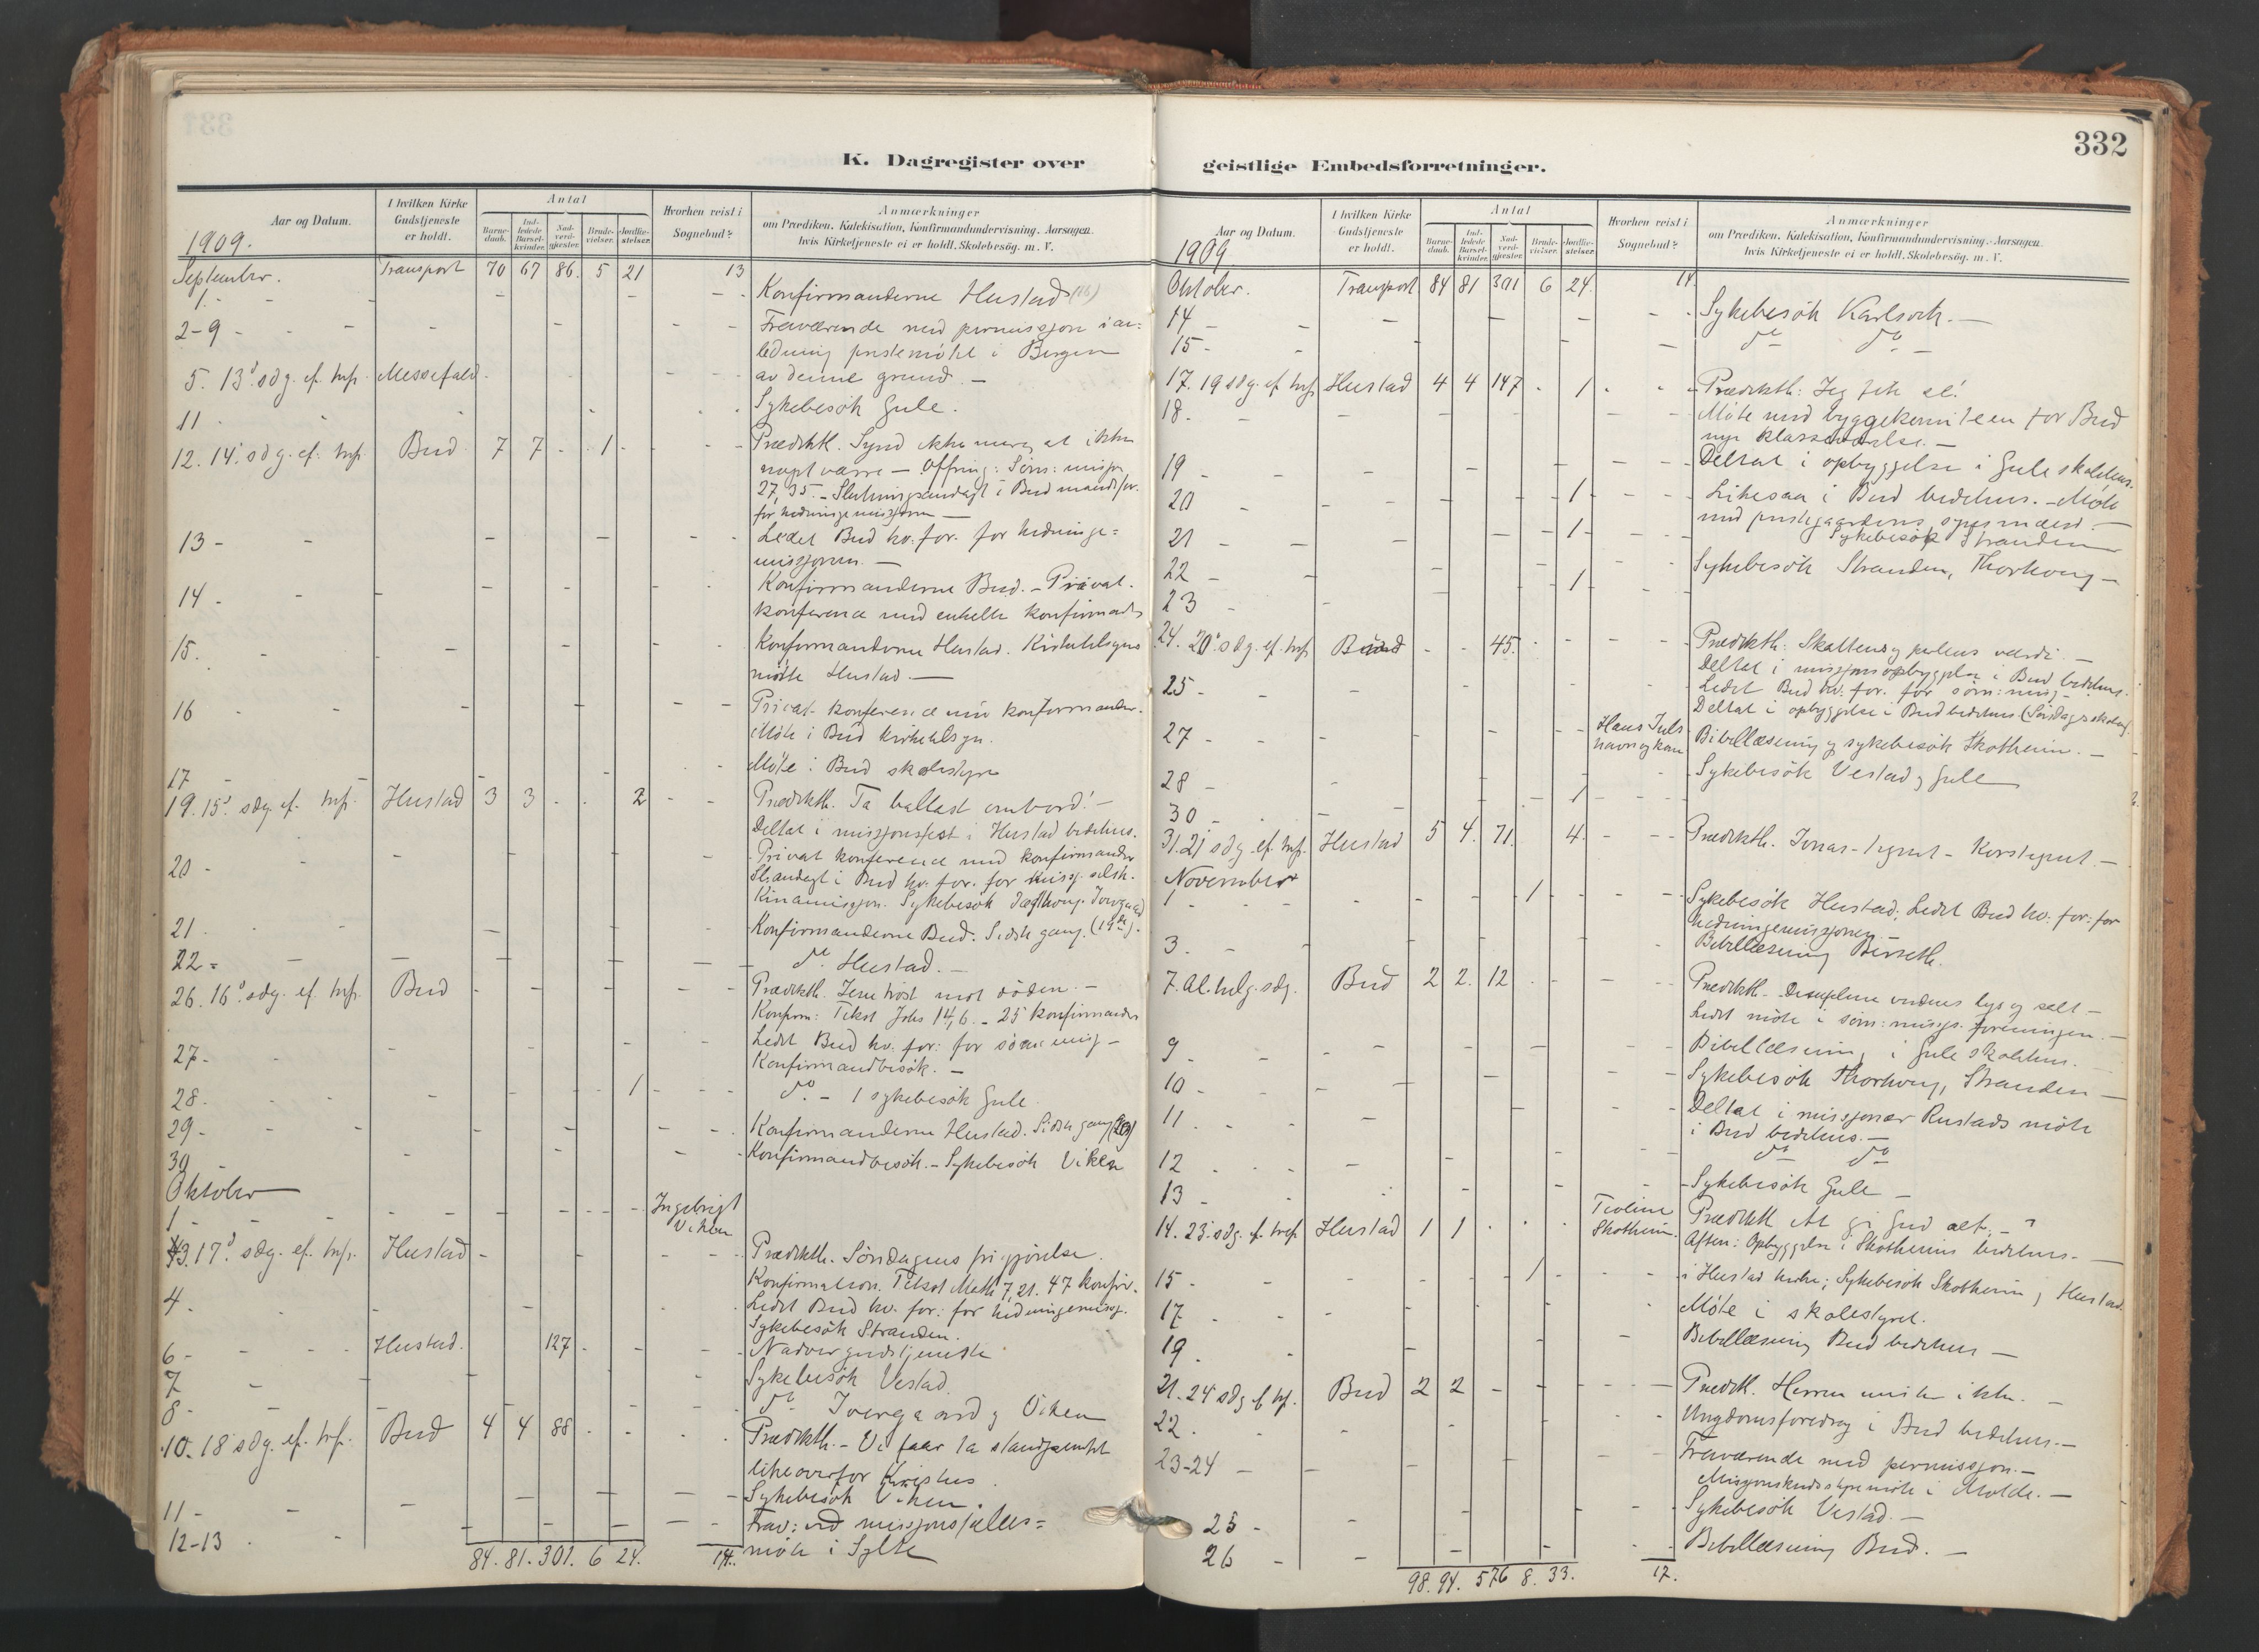 332
K. Dagregister over geistlige Embedsforretninger.
Aar og Datum. I hvilken Kirke Gudstjeneste er holdt. Antal Barnedaab. Indledede Barselkvinder. Nadverdgjester. Brudevielser. Jordfæstelser. Hvorhen reist i Sognebud? Anmærkninger om Prædiken, Katekisation, Konfirmandundervisning. Aarsagen, hvis Kirketjeneste ei er holdt. Skolebesøg. m. V.
1909.
September. Transport 70 67 86. 5 21 13
1. - Konfirmanderne Hustad (16)
2-9 - Fraværende med permissjon i an=
ledning prestemötet i Bergen
5. 13d sdg. ef. trf. Messefald. av denne grund. -
11 Sykebesök Gule.
12. 14. sdg. ef. trf. Bud 7 7 - 1 - Prædikth. Synd ikke mere, at ikke
noget værre - Offring: Söm: misj.
27,35. - Slutningsandagt i Bud mandsfor.
for hedningemissjonen -
13 - Ledet Bud kv. for. for hedninge=
missjonen. -
14 - Konfirmanderne Bud. - Privat-
konference med enkelte konfirmander
15. Konfirmanderne Hustad. Kirketilsyns
möte Hustad. -
16 Privat-konference med konfirmander.
Möte i Bud kirketilsyn.
17 - Möte i Bud skolestyre
19. 15d sdg. ef. trf. Hustad 3 3 . . 2 Prædikth. Ta ballast ombord! -
Deltat i missjonsfest i Hustad bedehus.
20 - Privat konference med konfirmander
Sl. andagt i Bud kv. for. for misj. selsk.
Kinamissjon. Sykebesök
21 Konfirmanderne Bud. Sidste gang. (19de).
22 - do Hustad. -
26. 16d sdg. ef. trf. Bud Prædikth. Jesu tröst mot döden. -
Konfirm: Tekst Johs 14,6. - 25 konfirmander
27- Ledet Bud kv. for: for söm: misj -
Konfirmandbesök. -
28- 1 do - 1 sykebesök Gule
29- Konfirmanderne Hustad. Sidste gang (20)
30 - Konfirmandbesök. - Sykebesök Viken
Oktober
1 - Ingebrigt
Viken
3. 17d sdg. ef. trf. Hustad - Prædikth. Söndagens frigjörelse.
Konfirmation. Tekst Math 7,21. 47 konfir.
4. Ledet Bud kv. for: for hedningemisj.
Sykebesök Stranden.
6 - Hustad. 127 Nadver gudstjeneste
7 - Sykebesök Vestad.
8 - do Tverga ard og Viken
10. 18 sdg. ef. trf. Bud 4 4 88 Prædikth. - Vi faar ta standpunkt
likeoverfor Kristus.
11 - Sykebesök Viken.
12-13 Frav: ved missjonsfælles=
möte i Sylte
84. 81. 301. 6 24. 14.
Aar og Datum. I hvilken Kirke Gudstjeneste er holdt. Antal Barnedaab. Indledede Barselkvinder. Nadverdgjester. Brudevielser. Jordfæstelser. Hvorhen reist i Sognebud? Anmærkninger om Prædiken, Katekisation, Konfirmandundervisning. Aarsagen, hvis Kirketjeneste ei er holdt. Skolebesøg. m. V.
1909
Oktober. Transport 84 81 301 6 24. 14.
14 - Sykebesök Karlsvik. -
15 - do do -
17. 19 sdg. ef. trf. Hustad 4 4 147 . 1 Prædikth: Jeg fik se!
18. - Möte med byggekomiteen for Bud
nye klasseværelse. -
19 - Deltat i opbyggelse i Gule skolehus.
20 - 1 Likesaa i Bud bedehus. - Möte
med prestegaardens opsynsmænd. -
21 - 1 Sykebesök Stranden
22 - Sykebesök Stranden, Thorhong -
23 - 1
24. 20d sdg. ef. trf. Bud - - 45. Prædikth: Skattens og perlens værdi. -
Deltat i missjonsopbyggelse i Bud bedehus.
25 - Ledet Bud kv. for. for söm: misj -
Deltat i opbyggelse i Bud bedehus (Söndagsskolen)
27 - Hans Juls
havn og kone Bibellæsning og sykebesök Skotheim. -
28 - Sykebesök Vestad og Gule
30 - 1
31. 21 sdg. ef. trf. Hustad 5 4. 71. 4. Prædikth. Jonas-tegnet - Korstegnet. -
November
1 - 1 Sykebesök Hustad: Ledet Bud kv: for: for
hedningemissjonen -
3. - Bibellæsning
7. Al. helg. sdg. Bud 2 2. 12 Prædikth - Disciplene verdens lys og salt -
Ledet möte i söm: misjs. foreningen. -
9 - Bibellæsning i Gule skolehus.
10 - Sykebesök Thorhong, Stranden -
11 . Deltat i missjonær Rustads möte
i Bud bedehus. -
12 . do do
13 - Sykebesök Gule -
14. 23 sdg. ef. tref. Hustad 1 1 Teoline
Skotheim. Prædikth At gi Gud alt. -
Aften: Opbyggelse i Skotheims bedehus. -
15 - 1 i Hustad kirke; Sykebesök Skotheim og Hustad.
17 - Möte i skolestyret.
19 . Bibellæsning Bud bedehus -
21. 24 sdg ef trf. Bud 2 2 - Prædk. Herren mister ikke. -
22 . Ungdomsforedrag i Bud bedehus. -
23-24 - Fraværende med permissjon. -
Missjonskredsstyremöte i Molde. -
25 - Sykebesök Vestad. -
26 - Bibellæsning Bud. -
98. 94. 576 8. 33. 17.